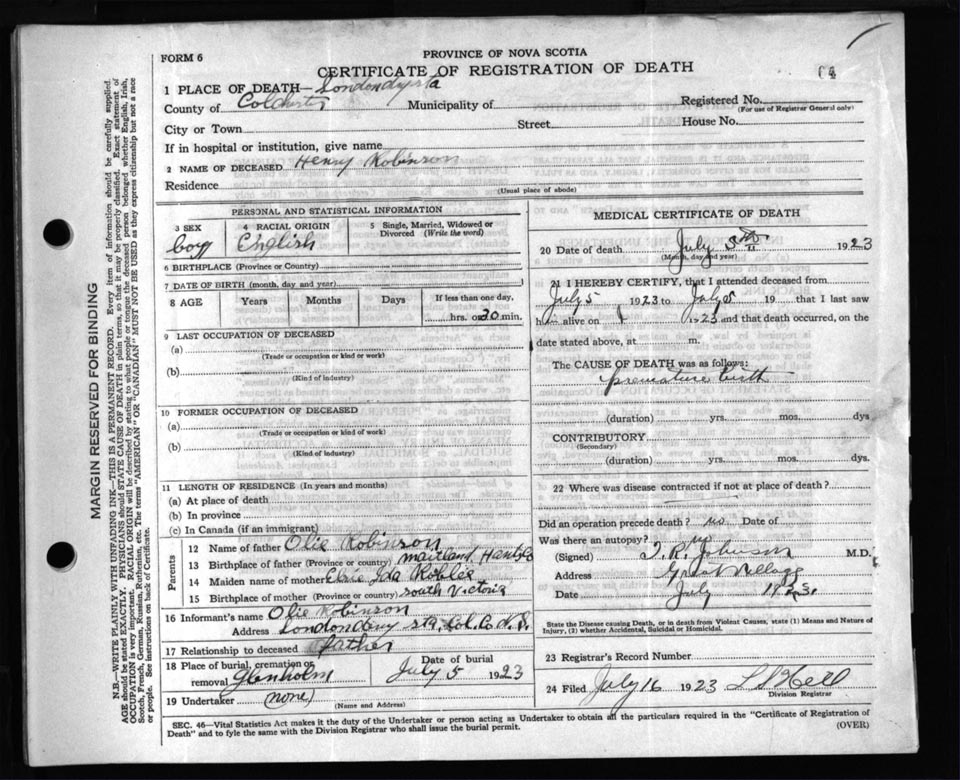 FORM 6
PROVINCE OF NOVA SCOTIA
CERTIFICATE OF REGISTRATION OF DEATH
1 PLACE OF DEATH— Londonderry sta
County of Colchester Municipality of Registered No.
(For use of Registrar General only)
City or Town Street House No.
If in hospital or institution, give name
2 NAME OF DECEASED Henry Robinson
Residence
(Usual place of abode)
PERSONAL AND STATISTICAL INFORMATION
3 SEX 4 RACIAL ORIGIN 5 Single, Married, Widowed or Divorced (Write the word)
boy English
6 BIRTHPLACE (Province or Country)
7 DATE OF BIRTH (month, day and year)
8 AGE Years Months Days If less than one day,
hrs. or 30 min.
9 LAST OCCUPATION OF DECEASED
(a)
(Trade or occupation or kind or work)
(b)
(Kind of industry)
10 FORMER OCCUPATION OF DECEASED
(a)
(Trade or occupation or kind of work)
(b)
(Kind of industry)
11 LENGTH OF RESIDENCE (In years and months)
(a) At place of death
(b) In province
(c) In Canada (if an immigrant)
Parents
12 Name of father Olie Robinson
13 Birthplace of father (Province or country) Maitland Hants Co
14 Maiden name of mother Elsie Ida
15 Birthplace of mother (Province or country) South Victoria
16 Informant's name Olie Robinson
Address Londonderry sta, Col. Co N.S.
17 Relationship to deceased father
18 Place of burial, cremation or removal Glenholm Date of burial July 5 1923
19 Undertaker (none)
(Name and Address)
MEDICAL CERTIFICATE OF DEATH
20 Date of death July 5th 1923
(Month, day and year)
21 I HEREBY CERTIFY, that I attended deceased from
July 5 1923 to July 5 19 that I last saw
him alive on 1923 and that death occurred, on the
date stated above, at m.
The CAUSE OF DEATH was as follows:
premature birth
(duration) yrs. mos. dys
CONTRIBUTORY
(Secondary)
(duration) yrs. mos. dys.
22 Where was disease contracted if not at place of death?
Did an operation precede death? no Date of
Was there an autopsy? no
(Signed) T. R. Johnson M.D.
Address Great Village
Date July
State the Disease causing Death, or in death from Violent Causes, state (1) Means and Nature of
Injury, (2) whether Accidental, Suicidal or Homicidal.
23 Registrar's Record Number
24 Filed July 16 1923
Division Registrar
SEC. 46—Vital Statistics Act makes it the duty of the Undertaker or person acting as Undertaker to obtain all the particulars required in the "Certificate of Registration of
Death" and to fyle the same with the Division Registrar who shall issue the burial permit.
(OVER)
MARGIN RESERVED FOR BINDING
N.B.—WRITE PLAINLY WITH UNFADING INK—THIS IS A PERMANENT RECORD. Every item of information should be carefully supplied.
AGE should be stated EXACTLY. PHYSICIANS should STATE CAUSE OF DEATH in plain terms, so that it may be properly classified. Exact statement of
OCCUPATION is very important. RACIAL ORIGIN will be described by stating to what people or tongue the deceased person belonged whether English, Irish,
Scotch, French, German, Russian, Ruthenian, etc. The terms "AMERICAN" OR "CANADIAN" MUST NOT BE USED as they express citizenship but not a race
or people. See instructions on back of Certificate.